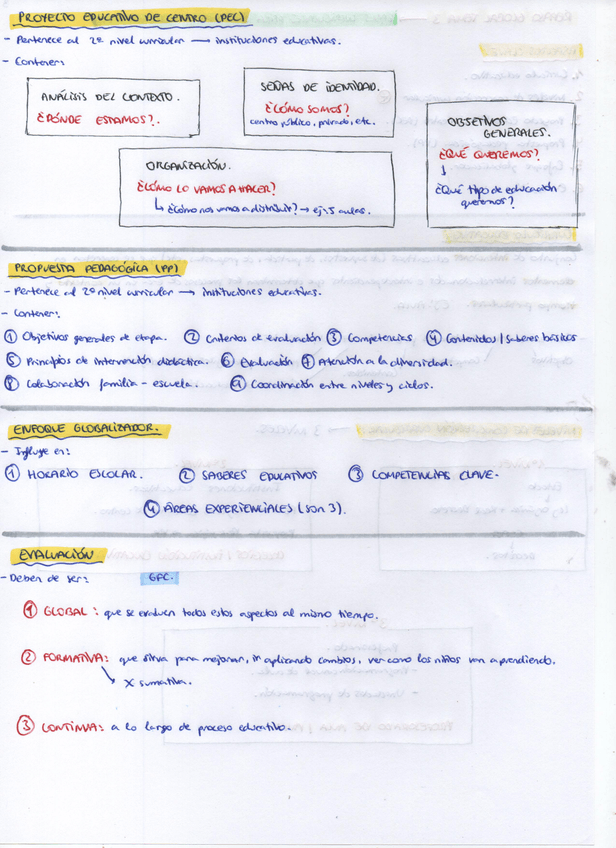 PROYECTO EDUCATIVO DE CENTRO (PEC)
- Pertenece al 2º nivel curricular → instituciones educativas.
- Contener:
ANÁLISIS DEL CONTEXTO.
¿DÓNDE ESTAMOS?.
SEÑAS DE IDENTIDAD.
¿CÓMO SOMOS?
centro público, privado, etc.
OBJETIVOS
GENERALES.
¿QUÉ QUEREMOS?
↓
¿Qué tipo de educación
queremos?
ORGANIZACIÓN.
¿CÓMO LO VAMOS A HACER?
↳ ¿Cómo nos vamos a distribuir? → ej: 5 aulas.
PROPUESTA PEDAGÓGICA (PP)
- Pertenece al 2º nivel curricular → instituciones educativas.
- Contener:
① Objetivos generales de etapa. ② Criterios de evaluación ③ Competencias ④ Contenidos / saberes básicos
⑤ Principios de intervención didáctica. ⑥ Evaluación ⑦ Atención a la diversidad.
⑧ Colaboración familia - escuela. ⑨ Coordinación entre niveles y ciclos.
ENFOQUE GLOBALIZADOR.
- Influye en:
① HORARIO ESCOLAR. ② SABERES EDUCATIVOS ③ COMPETENCIAS CLAVE.
④ ÁREAS EXPERIENCIALES (son 3).
EVALUACIÓN
- Deben de ser: GFC.
① GLOBAL: que se evaluen todos estos aspectos al mismo tiempo.
② FORMATIVA: que sirva para mejorar, ir aplicando cambios, ver como los niños van aprendiendo.
↘ X sumativa.
③ CONTINUA: a lo largo de proceso educativo.